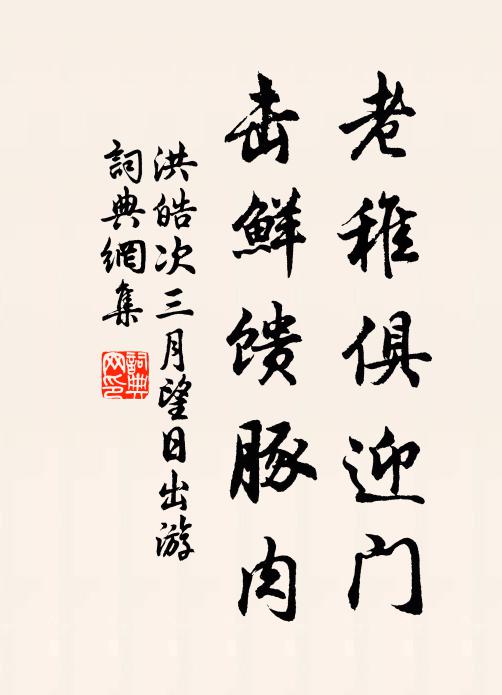 老稚俱迎门
击鲜馈豚肉
洪皓次三月望日出游
詞典網集
詞典网印